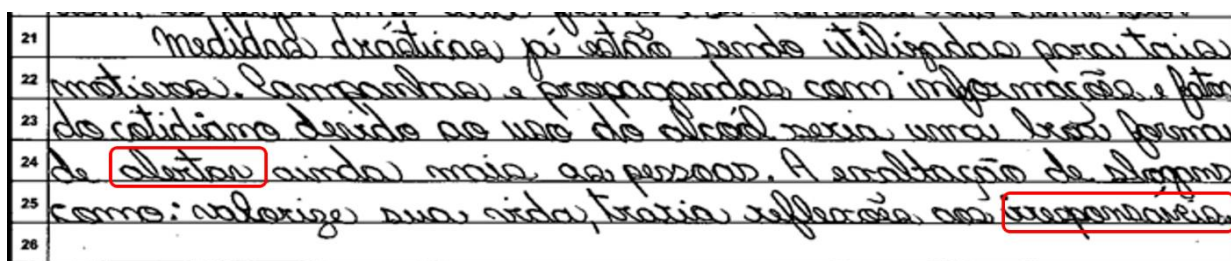 21 Medidas drásticas já estão sendo utilizadas para tais
22 motivos. Campanhas e propagandas com informações, e fatos
23 do cotidiano devido ao uso do álcool seria uma boa forma
24 de alertar ainda mais as pessoas. A exaltação de slogans
25 como: valorize sua vida, traria reflexões aos irresponsáveis
26